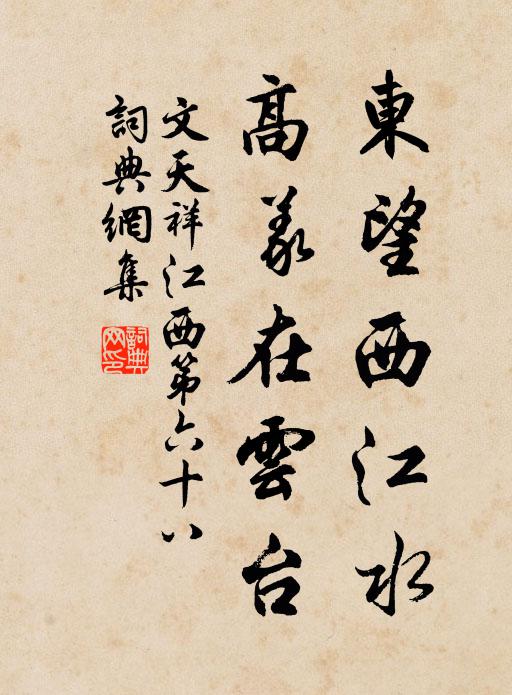 東望西江水
高義在雲台
文天祥江西第六十八
詞典網集
詞典网印